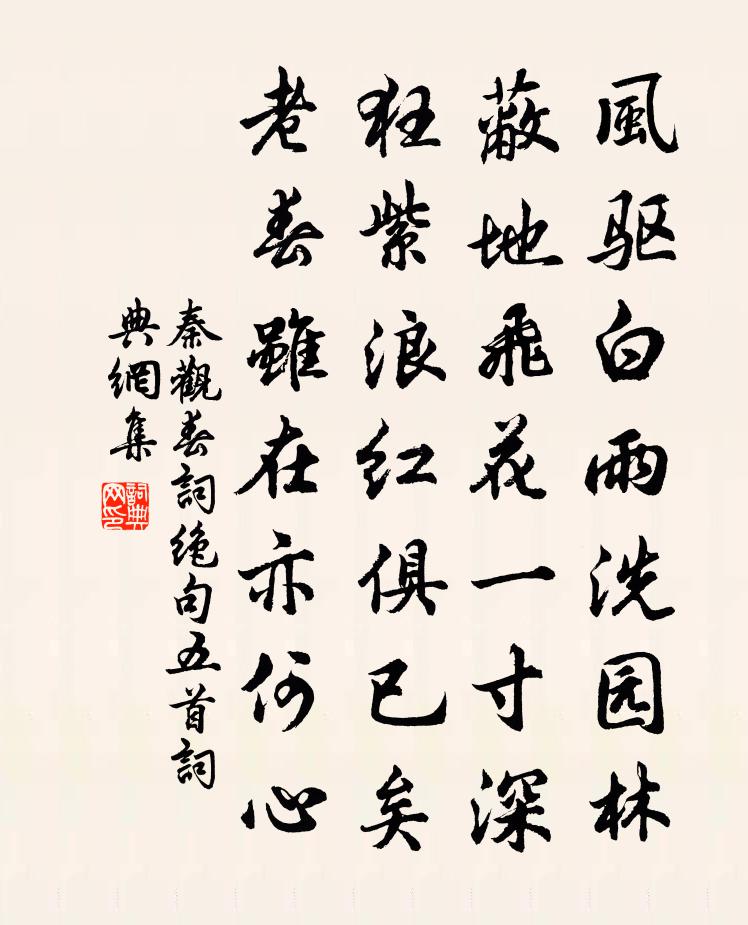 風驱白雨洗园林
蔽地飛花一寸深
狂紫浪红俱已矣
老春雖在亦何心
秦觀春詞绝句五首詞
典網集
詞典网印